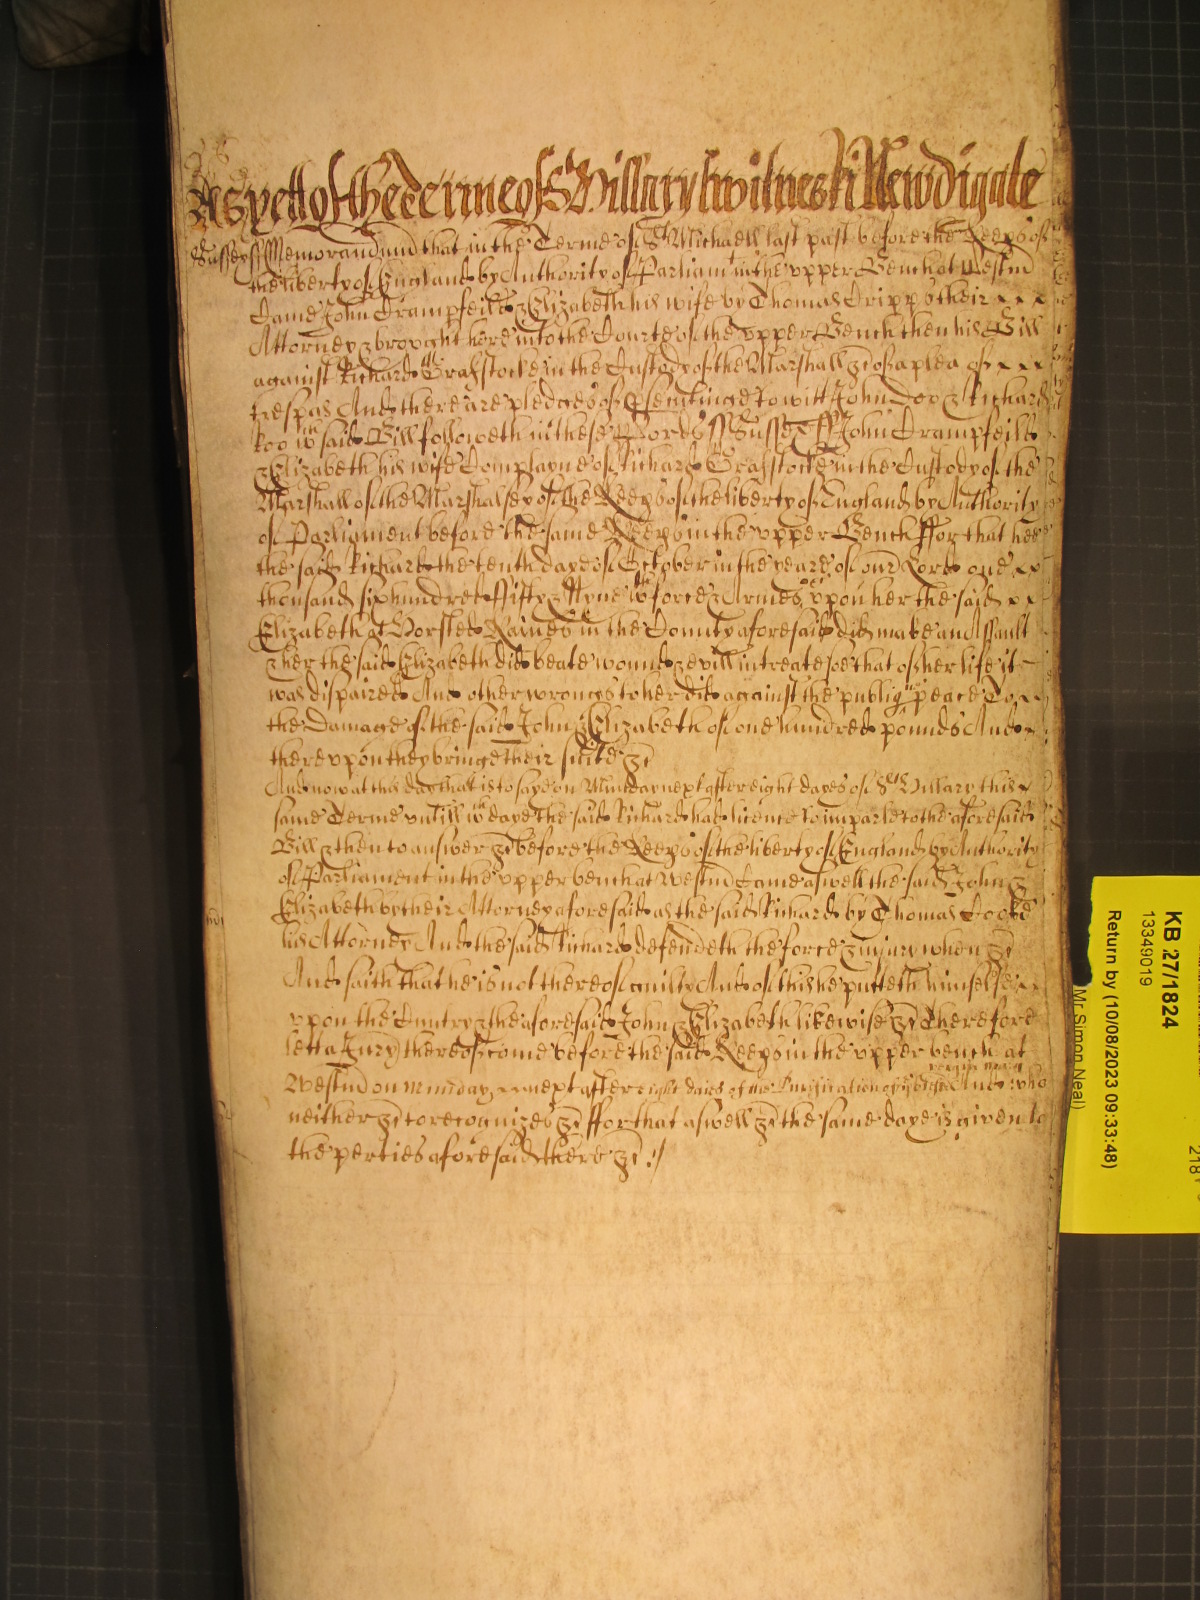 As yett of the Terme of St Hillary Witnes Ri Newdigate
Sussex ss Memorandum that in the Terme of St Michaell last past before the Keeps of
the liberty of England by Authority of Parliamt in the upper Bench at Westmr
Came John Crampfeild & Elizabeth his wife by Thomas Cripps their
Attorney & brought here into the Courte of the upper Bench then his Bill
against Richard Grasstocke in the Custody of the Marshall &c of a plea of
trespas And there are pledges of psecutinge to witt John Doo & Richard
Roo wch said Bill followeth in these Words ss Sussex ss John Crampfeild
& Elizabeth his wife Complayne of Richard Grasstocke in the Custody of the
Marshall of the Marshalsey of the Keeps of the liberty of England by Authority
of Parliament before the same Keeps in the upper Bench ffor that hee
the said Richard the tenth daye of October in the yeare of our Lord one
thousand six hundred ffifty & Nyne wth force & Armes &c upon her the said
Elizabeth at Horsted Kaines in the County aforesaid did make an Assault
& her the said Elizabeth did beate wound & evill intreate soe that of her life it
was dispaired And other wronges to her did against the publiq peace To
the Damage of the said John & Elizabeth of one hundred pounds And
thereupon they bringe their suite &c
And now at this day that is to saye on Munday next after eight dayes of St Hillary this
same Terme untill wch daye the said Richard had licence to imparle to the aforesaid
Bill & then to answer &c before the Keeps of the liberty of England by Authority
of Parliament in the upper bench at Westmr Came aswell the said John &
Elizabeth by their Attorney aforesaid as the said Richard by Thomas Cooke
his Attorney And the said Richard defendeth the force & injury when &c
And saith that he is not thereof guilty And of this he putteth himselfe
upon the Cuntry & the aforesaid John & Elizabeth likewise &c Therefore
lett a Jury thereof come before the said Keeps in the upper bench at
virgin mary
Westmr on munday next after eight daies of the Purification of the blessed And who
neither &c to recognize &c ffor that aswell &c the same daye is given to
the perties aforesaid there &c
KB 27/1824
13349019
Return by (10/08/2023 09:33:48)
Mr Simon Neal)